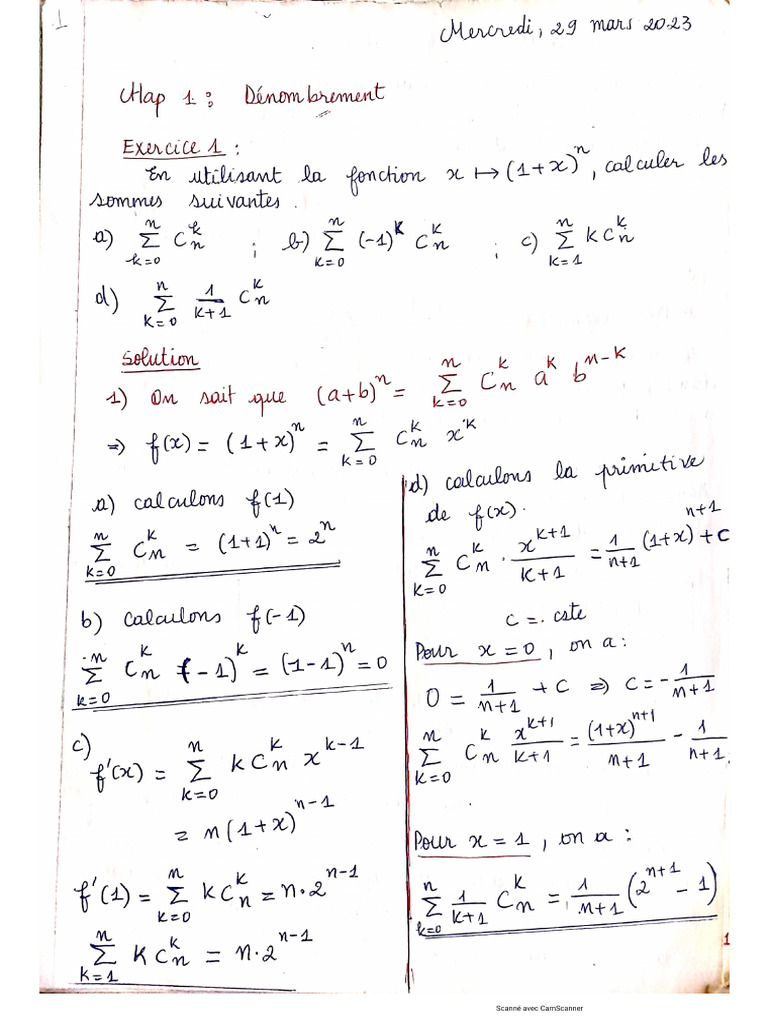 1
Mercredi, 29 mars 2023
Chap 1 : Dénombrement
Exercice 1 :
En utilisant la fonction x ↦ (1+x)^n, calculer les
sommes suivantes.
a) ∑_{k=0}^{n} C_n^k ; b) ∑_{k=0}^{n} (-1)^k C_n^k ; c) ∑_{k=1}^{n} k C_n^k
d) ∑_{k=0}^{n} 1/(k+1) C_n^k
Solution
1) On sait que (a+b)^n = ∑_{k=0}^{n} C_n^k a^k b^{n-k}
⇒ f(x) = (1+x)^n = ∑_{k=0}^{n} C_n^k x^k
a) calculons f(1)
∑_{k=0}^{n} C_n^k = (1+1)^n = 2^n
b) calculons f(-1)
∑_{k=0}^{n} C_n^k (-1)^k = (1-1)^n = 0
c)
f'(x) = ∑_{k=0}^{n} k C_n^k x^{k-1}
= n(1+x)^{n-1}
f'(1) = ∑_{k=0}^{n} k C_n^k = n·2^{n-1}
∑_{k=1}^{n} k C_n^k = n·2^{n-1}
d) calculons la primitive
de f(x).
∑_{k=0}^{n} C_n^k · x^{k+1}/(k+1) = 1/(n+1) (1+x)^{n+1} + C
C = cste
Pour x = 0, on a :
0 = 1/(n+1) + C ⇒ C = -1/(n+1)
∑_{k=0}^{n} C_n^k x^{k+1}/(k+1) = (1+x)^{n+1}/(n+1) - 1/(n+1)
Pour x = 1, on a :
∑_{k=0}^{n} 1/(k+1) C_n^k = 1/(n+1) (2^{n+1} - 1)
1
Scanné avec CamScanner